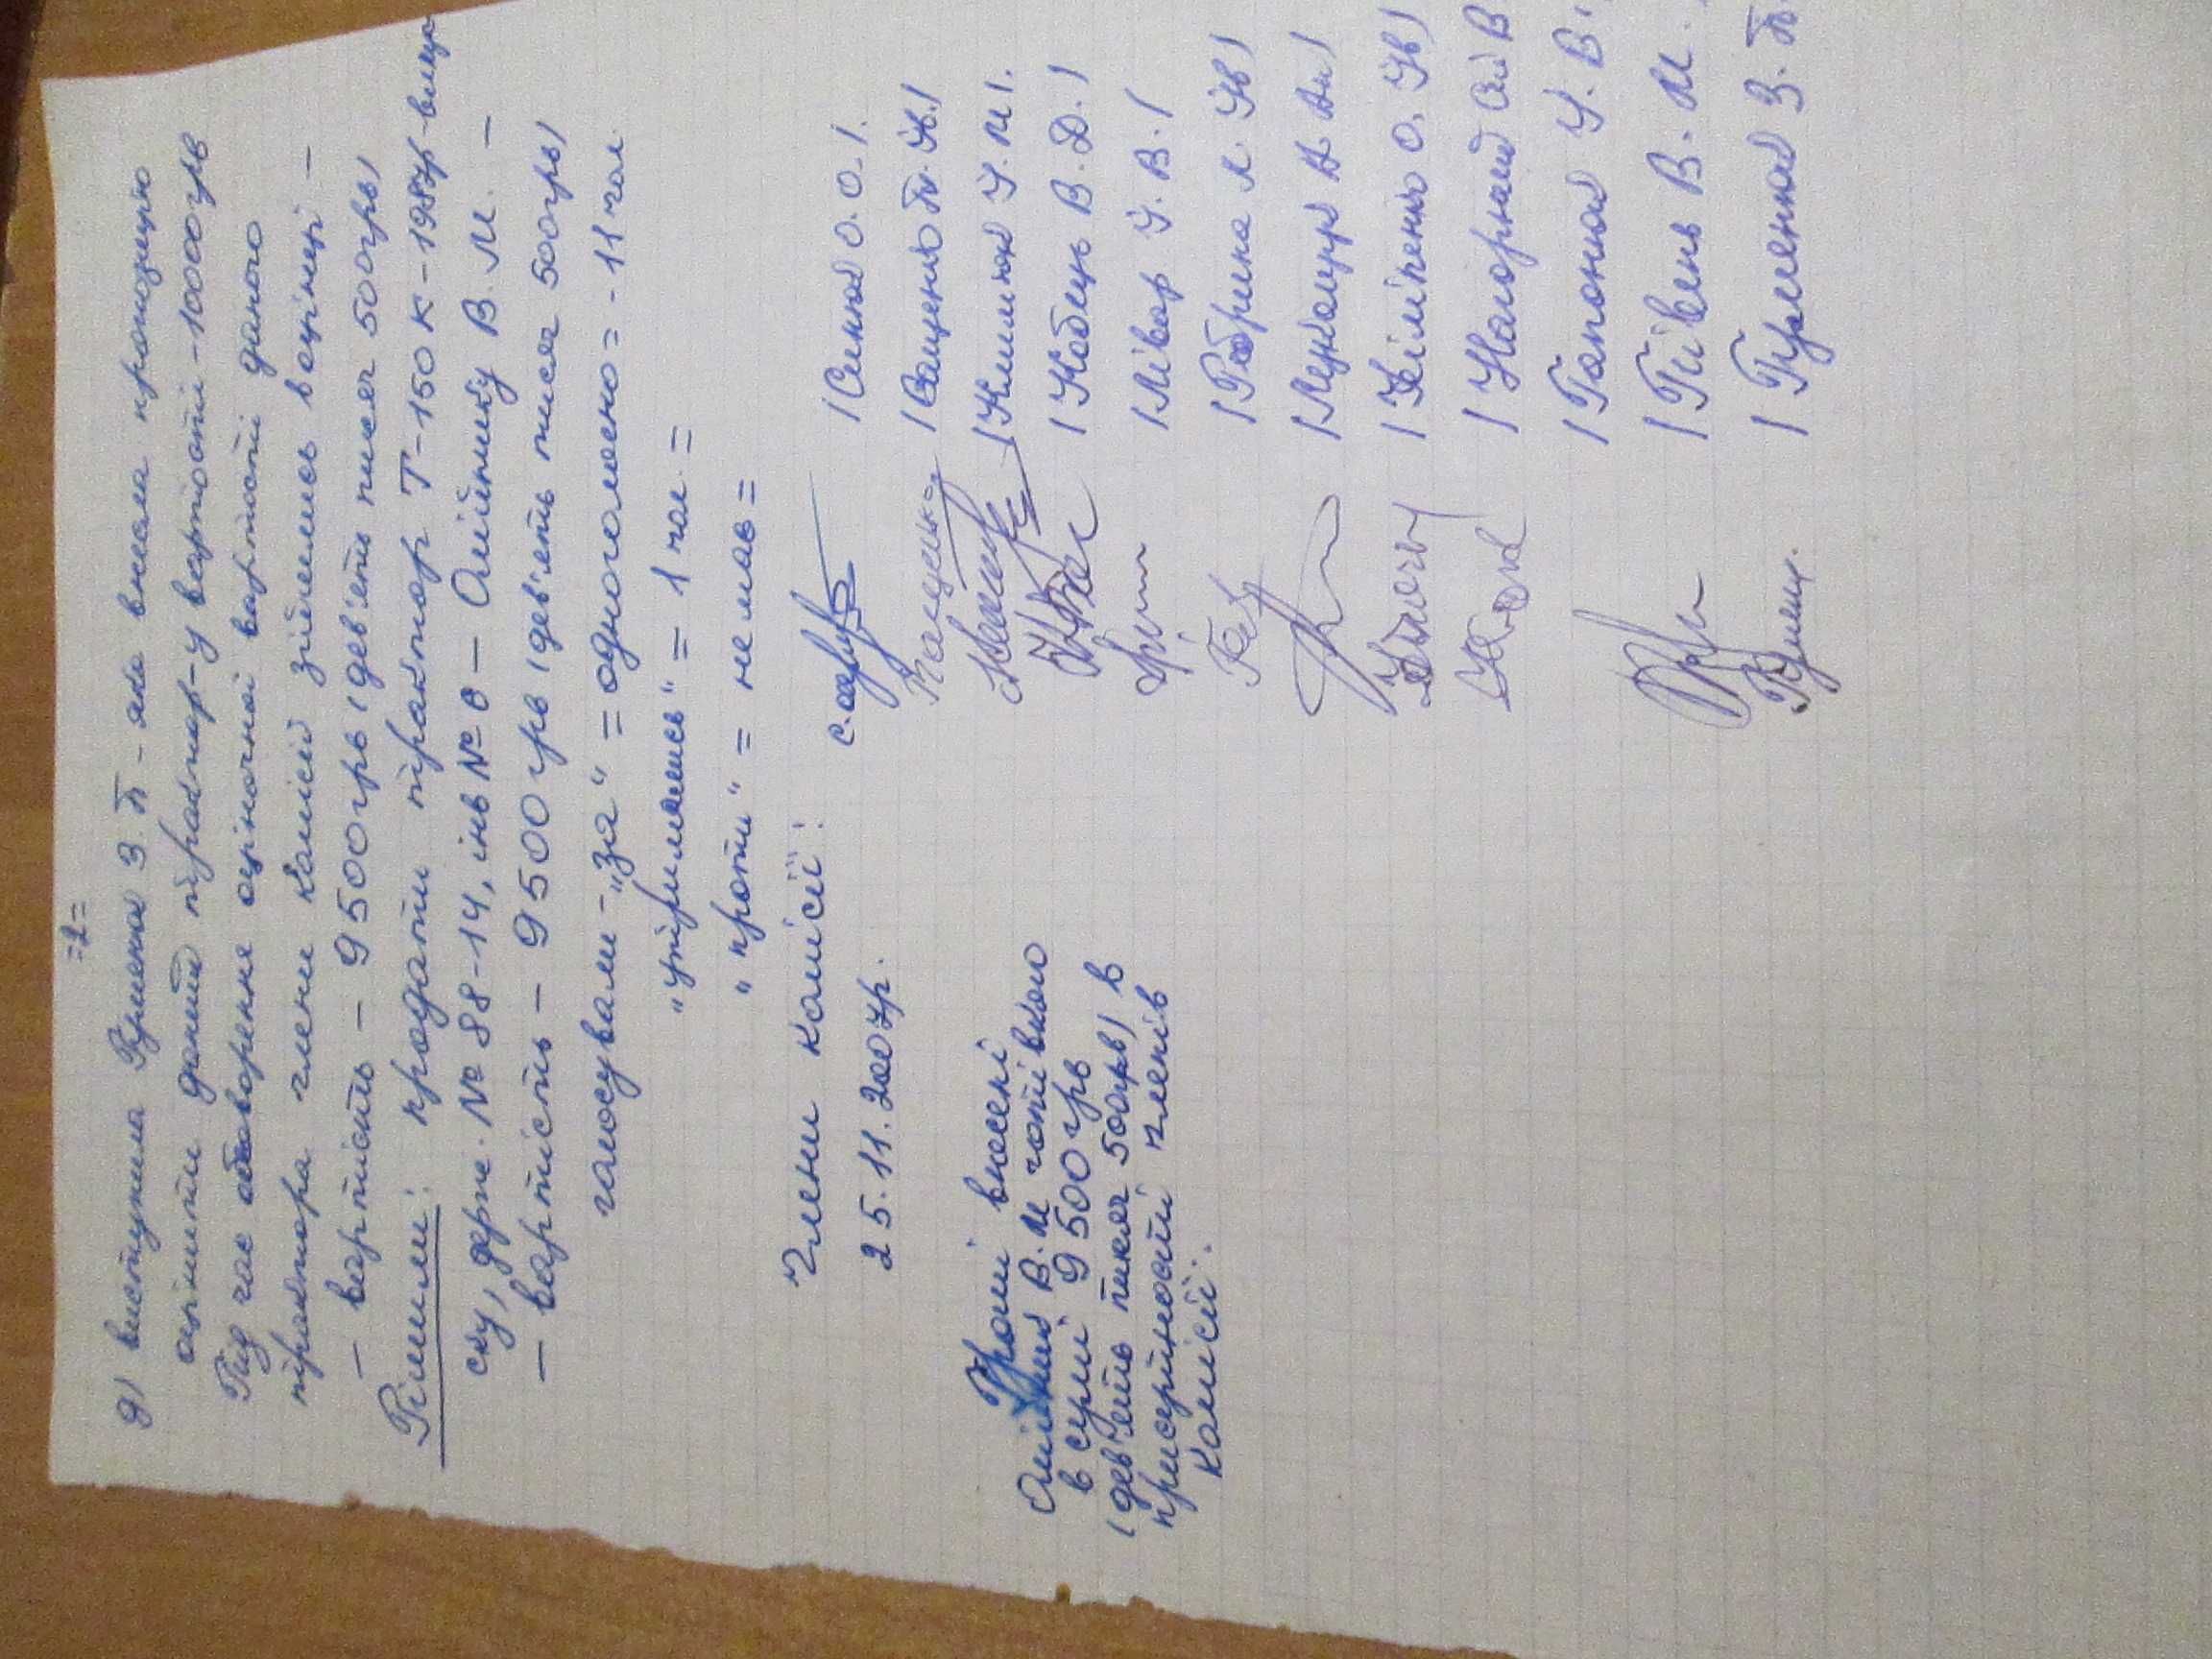 =2=
д) виступила Гуменюк З. П - яка внесла пропозицію
оцінити даний трактор-у вартості -10000грв
Під час обговорення оціночної вартості даного
трактора члени комісії зійшлись в оцінці -
- вартість - 9500грв (дев'ять тисяч 500грв)
Рішили: продати трактор Т-150 К-1987р-випу
ску, держ. № 88-14, інв № 0 - Олійнику В. М. -
- вартість - 9500 грв (дев'ять тисяч 500грв)
голосували - „за" = одноголосно = - 11 чол
„утримались" = 1 чол =
„проти" = немає =
Члени комісії:
25.11.2007р.
/Синюк О.О./
/Ващенко П. Ж./
/Климчук У. М/.
/Кобець В. Д./
/Лівар У. В./
/Ребрина М. Ів)
/Лункашук Н Ан)
/Кліменко О. Ів)
/Нагорний Ол В
/Гапонюк У. В.
/Півень В. М.
/Гуменюк З. П.
Гроші внесені
Олійник В. М готівкою
в сумі 9500грв
(дев'ять тисяч 500грв) в
присутності членів
комісії.